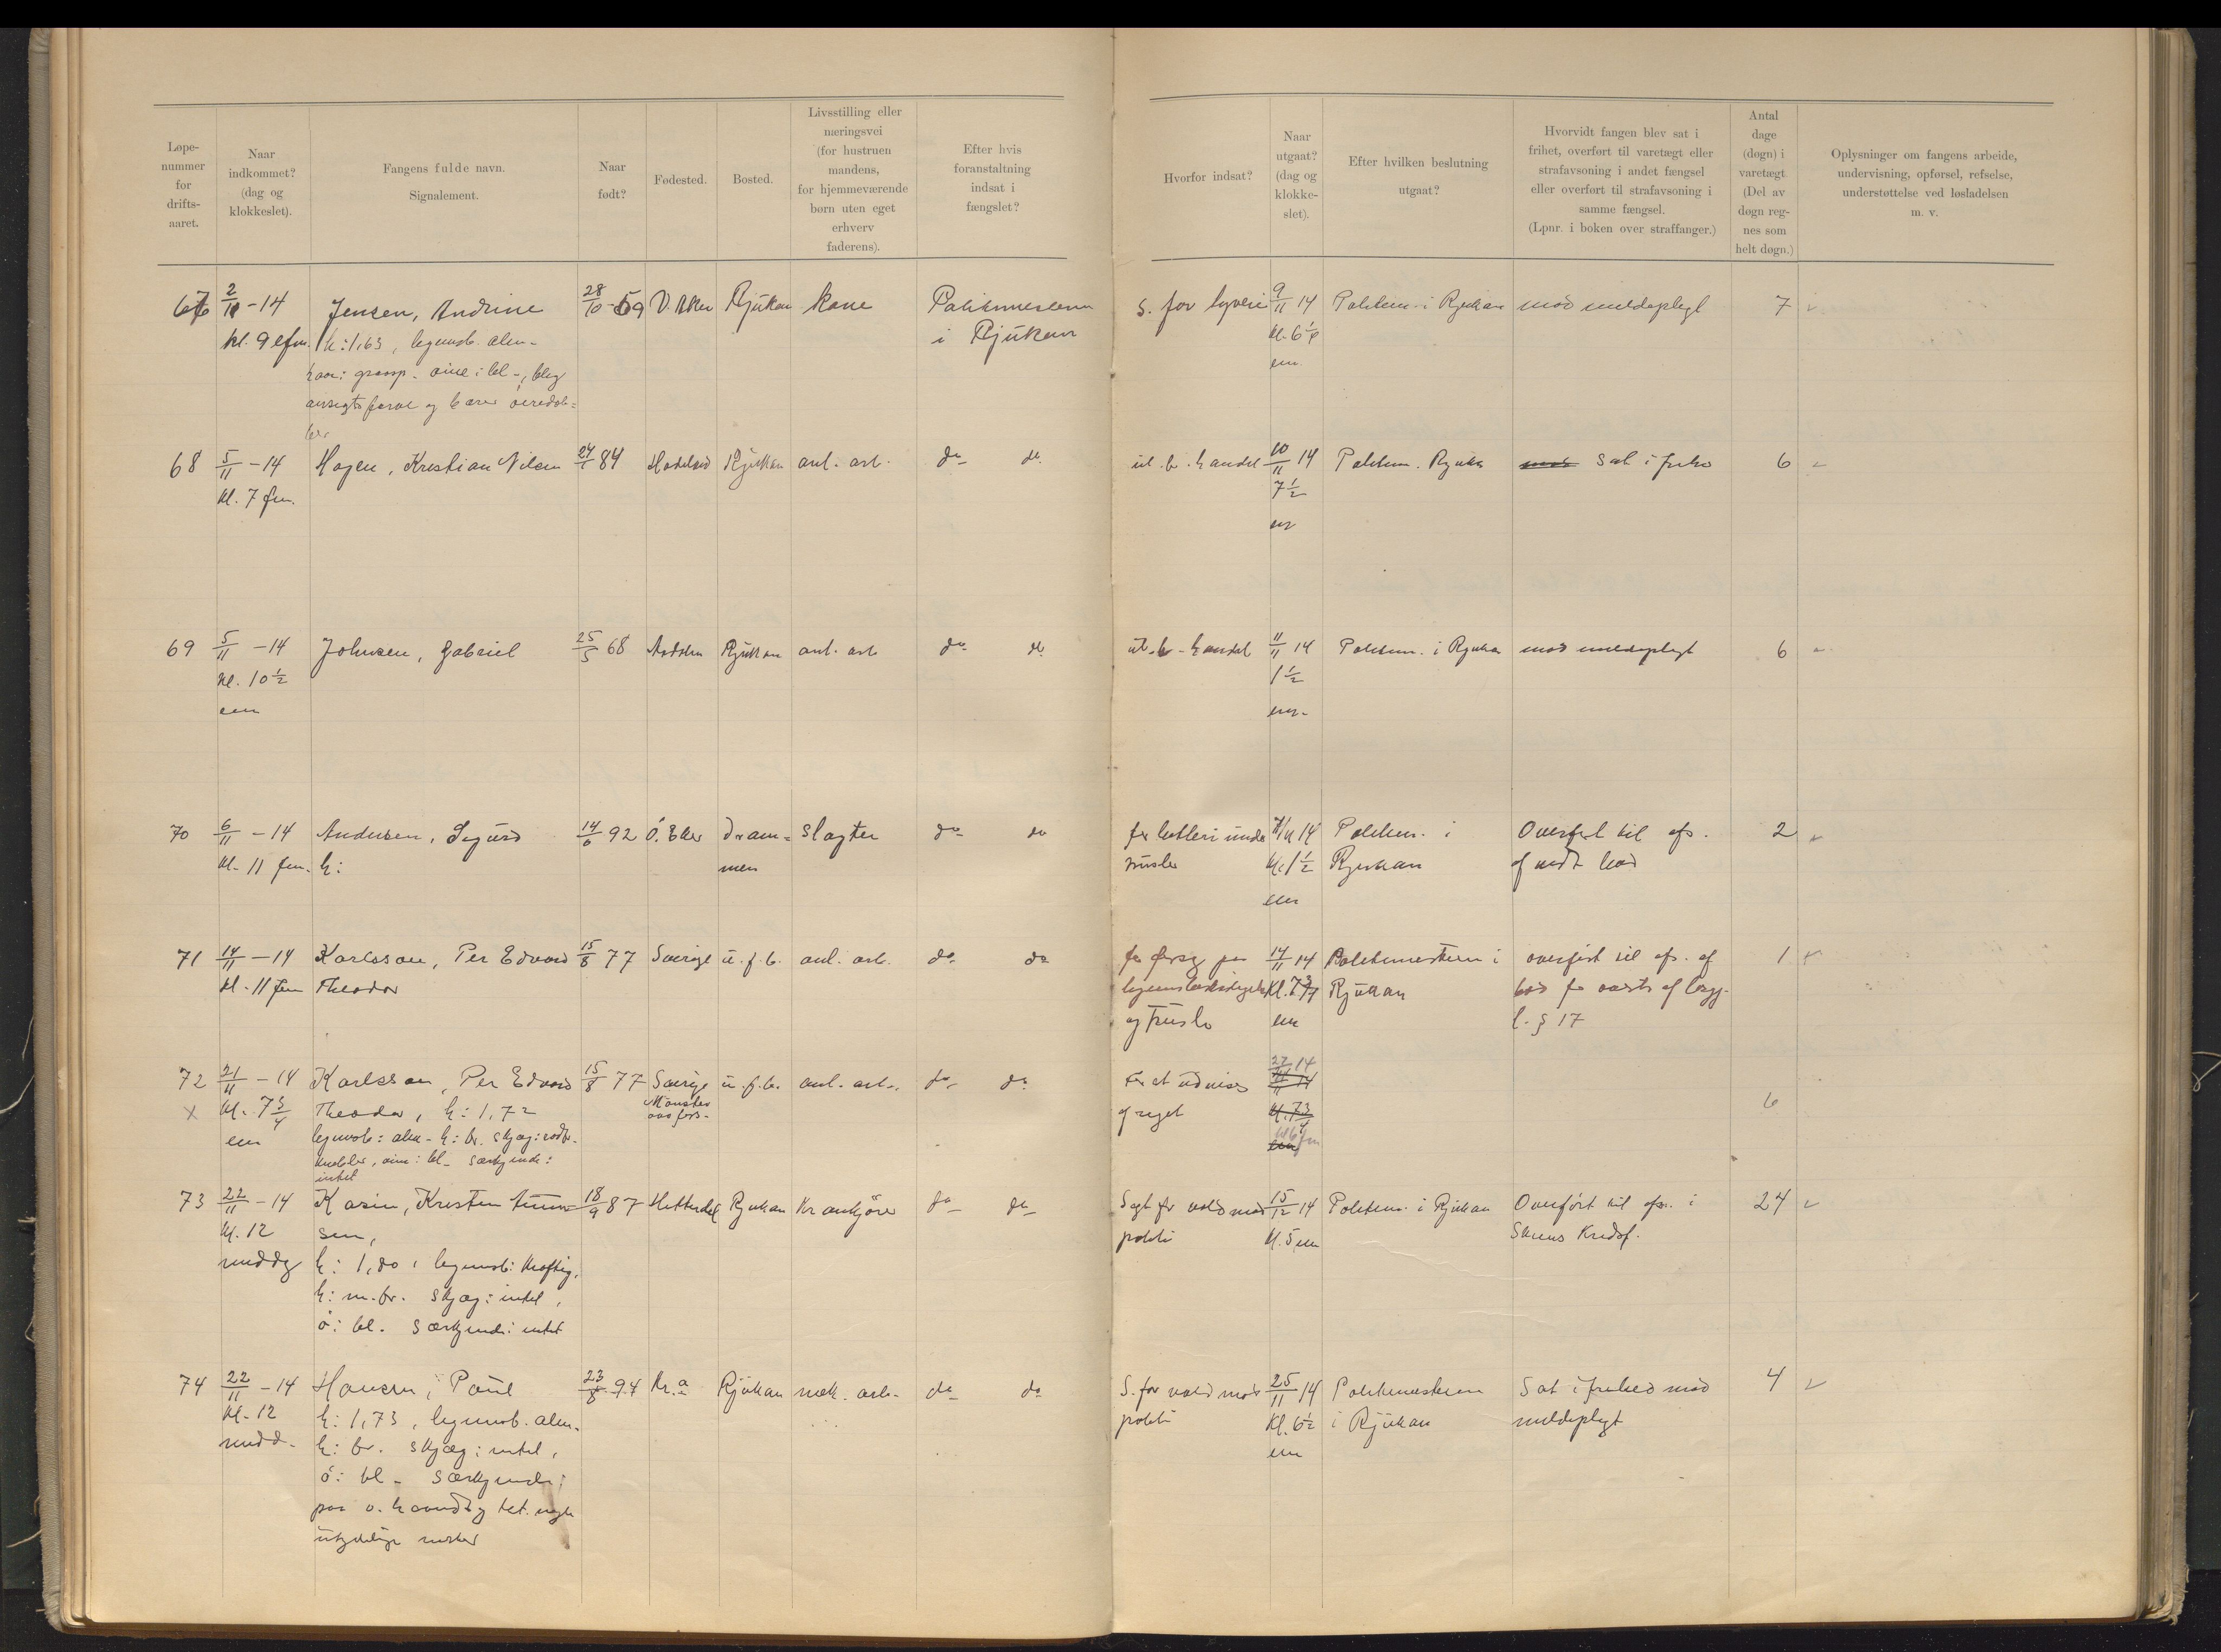 Løpe-
nummer
for
drifts-
aaret.
Naar
indkommet?
(dag og
klokkeslet).
Fangens fulde navn.
Signalement.
Naar
født?
Fødested.
Bosted.
Livsstilling eller
næringsvei
(for hustruen
mandens,
for hjemmeværende
børn uten eget
erhverv
faderens).
Efter hvis
foranstaltning
indsat i
fængslet?
Hvorfor indsat?
Naar
utgaat?
(dag og
klokke-
slet).
Efter hvilken beslutning
utgaat?
Hvorvidt fangen blev sat i
frihet, overført til varetægt eller
strafavsoning i andet fængsel
eller overført til strafavsoning i
samme fængsel.
(Lpnr. i boken over straffanger.)
Antal
dage
(døgn) i
varetægt.
(Del av
døgn reg-
nes som
helt døgn.)
Oplysninger om fangens arbeide,
undervisning, opførsel, refselse,
understøttelse ved løsladelsen
m. v.
67 2/11 - 14 Jensen, Andrine 28/10 - 69 V. Aker Rjukan kone Politimesteren s. for tyveri 9/11 14 Politim. i Rjukan mod meldepligt 7
kl. 9 efm. h: 1,63, legemsb. alm- i Rjukan kl. 6
haar: graasp. øine: bl-, bleg em
ansigtsfarve og bærer øredob-
ber
68 5/11 - 14 Hagen, Kristian Nilsen 84 Hadeland Rjukan anl. arb. do do ul. b. handel 10/11 14 Politim. Rjukan sat i frihe 6
kl. 7 fm. 7 1/2
em
69 5/11 - 14 Johnsen, Gabriel 25/5 68 Rjukan anl. arb do do ul. b. handel 11/11 14 Politim. i Rjukan mod meldepligt 6
kl. 10 1/2 1 1/2
em em.
70 6/11 - 14 Andersen, Sigurd 14/6 92 Ø. Eker Dram= slagter do do for betleri under 7/11 14 Politim. i Overført til afs. 2
kl. 11 fm. h: men trusler kl. 1 1/2 Rjukan af idt bod
em
71 14/11 - 14 Karlsson, Per Edvard 15/8 77 Sverige u. f. b. anl. arb. do do for forsøg paa 14/11 14 Politimesteren i overført til afs. af 1
kl. 11 fm Theodor legemsbeskadigelse kl. 7 3/4 Rjukan bod for overtr. af løsg.
og trusler em l. § 17
72 21/11 - 14 Karlsson, Per Edvard 15/8 77 Sverige u. f. b. anl. arb. do do For at udvises 27/11 14
x kl. 7 3/4 Theodor, h: 1,72 Mönster af riget kl. 7 3/4 6
em legemsb: alm- h: br. skjæg: rødbr. kl 6 fm
knebler, øine: bl- særkjende:
intet
73 22/11 - 14 Karin, Kristen 18/9 87 Hitterdal Rjukan Krankjører do do Sigt. for vold mod 15/12 14 Politim. i Rjukan Overført til afs. i 24
kl. 12 sen, politi kl. 5 em Skiens Kredsf.
middg h: 1,80, legemsb: kraftig,
h: m. br. skjæg: intet,
ø: bl. særkjende: intet
74 22/11 - 14 Hansen, Paul 23/8 94 Kr.a Rjukan mek. arb. do do S. for vold mot 25/11 14 Politimesteren Sat i frihed mod 4
kl. 12 h: 1,73, legemsb. alm. politi kl. 6 1/2 i Rjukan meldepligt
midd. h: br. skjæg: intet, em
ø: bl- særkjende:
paa v. haand tet. nogle
utydelige merker